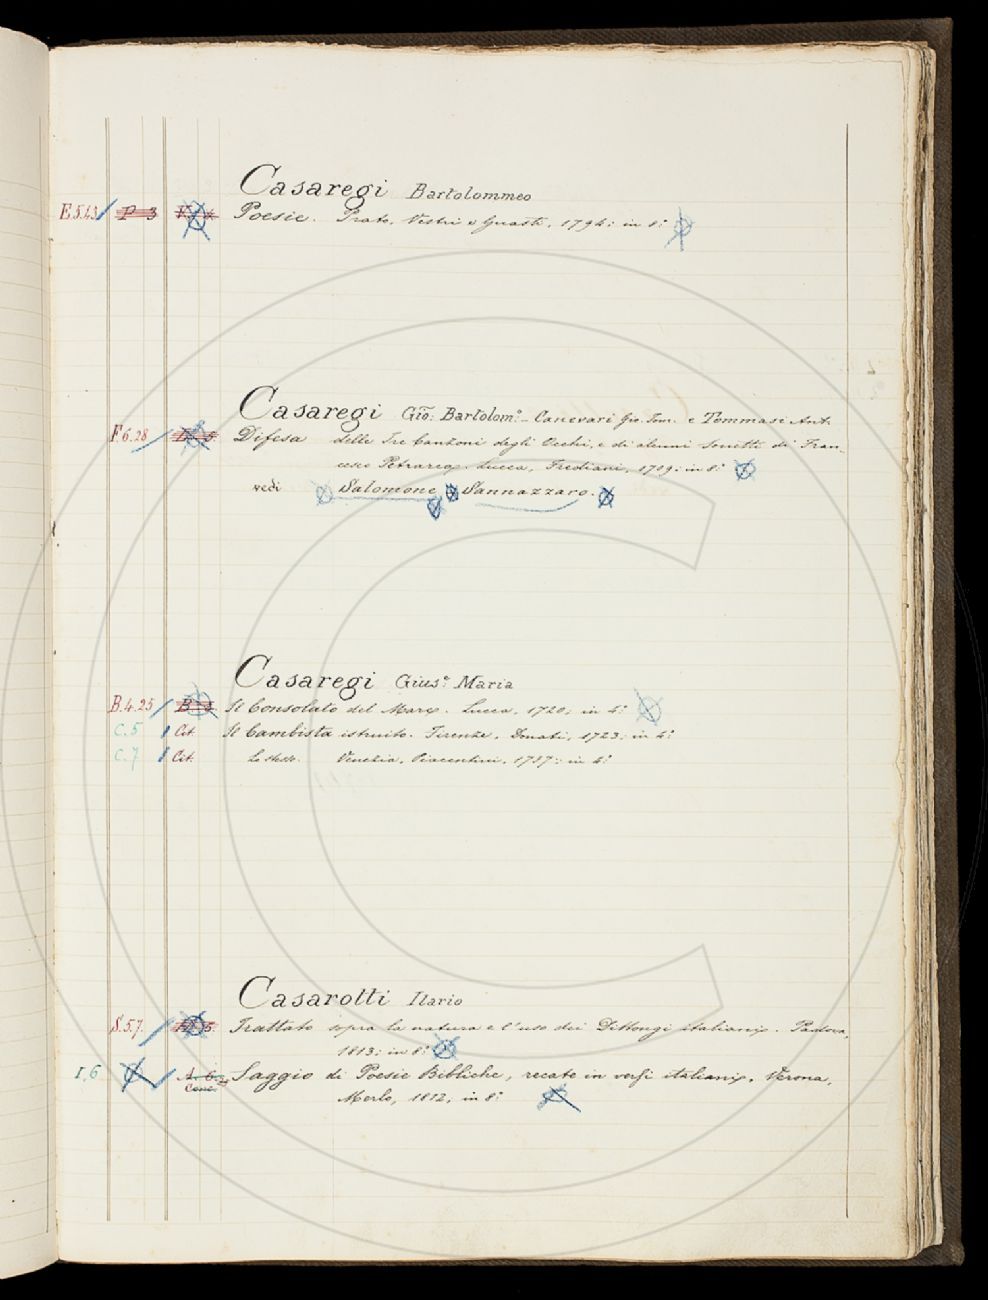 Casaregi Bartolommeo
E.5.43 P 3 Poesie. Prato, Vestri e Guasti, 1794: in 8.º
Casaregi Gio: Bartolom.º - Canevari Gio. Tom. e Tommasi Ant.
F.6.28 Difesa delle Tre Canzoni degli Occhi, e di alcuni Sonetti di Fran-
cesco Petrarca. Lucca, Frediani, 1709: in 8.º
vedi Salomone Sannazzaro.
Casaregi Gius.e Maria
B.4.25 Il Consolato del Mare. Lucca, 1720: in 4.º
C.5 Cit. Il Cambista istruito. Firenze, Donati, 1723: in 4.º
C.7 Cit. Lo stesso. Venezia, Piacentini, 1737: in 4.º
Casarotti Ilario
S.5.7. Trattato sopra la natura e l'uso dei Dittongi italiani. Padova,
1813: in 8.º
I,6 Conc. Saggio di Poesie Bibliche, recate in versi italiani. Verona,
Merlo, 1812, in 8.º